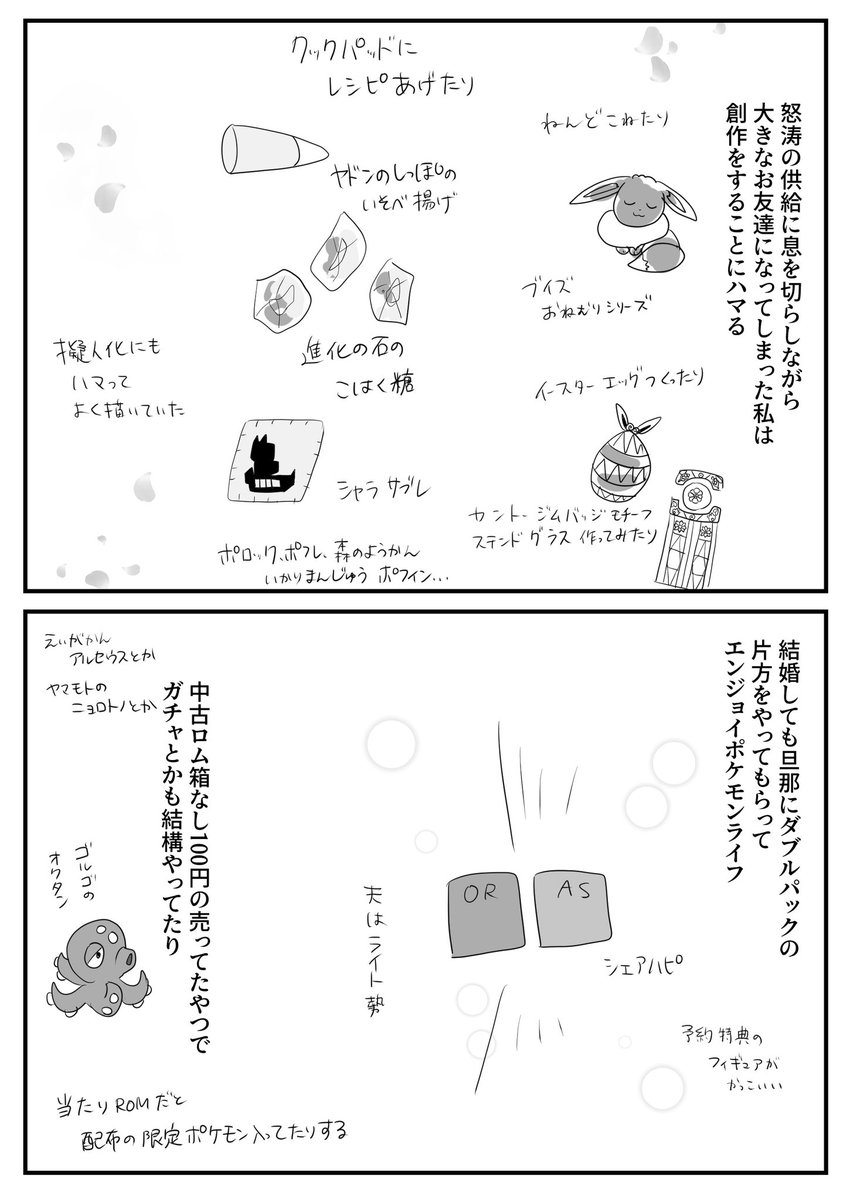 怒涛の供給に息を切らしながら
大きなお友達になってしまった私は
創作をすることにハマる
クックパッドに
レシピあげたり
ねんどこねたり
ヤドンのしっぽの
いそべ揚げ
ブイズ
おねむりシリーズ
進化の石の
こはく糖
擬人化にも
ハマって
よく描いていた
イースターエッグつくったり
シャラサブレ
カントージムバッジモチーフ
ステンドグラス作ってみたり
ポロック、ポフレ、森のようかん
いかりまんじゅう ポフィン…
結婚しても旦那にダブルパックの
片方をやってもらって
エンジョイポケモンライフ
OR
AS
シェアハピ
夫はライト勢
予約特典の
フィギュアが
かっこいい
中古ロム箱なし100円の売ってたやつで
ガチャとかも結構やってたり
えいがかん
アルセウスとか
ヤマモトの
ニョロトノとか
ゴルゴの
オクタン
当たりROMだと
配布の限定ポケモン入ってたりする